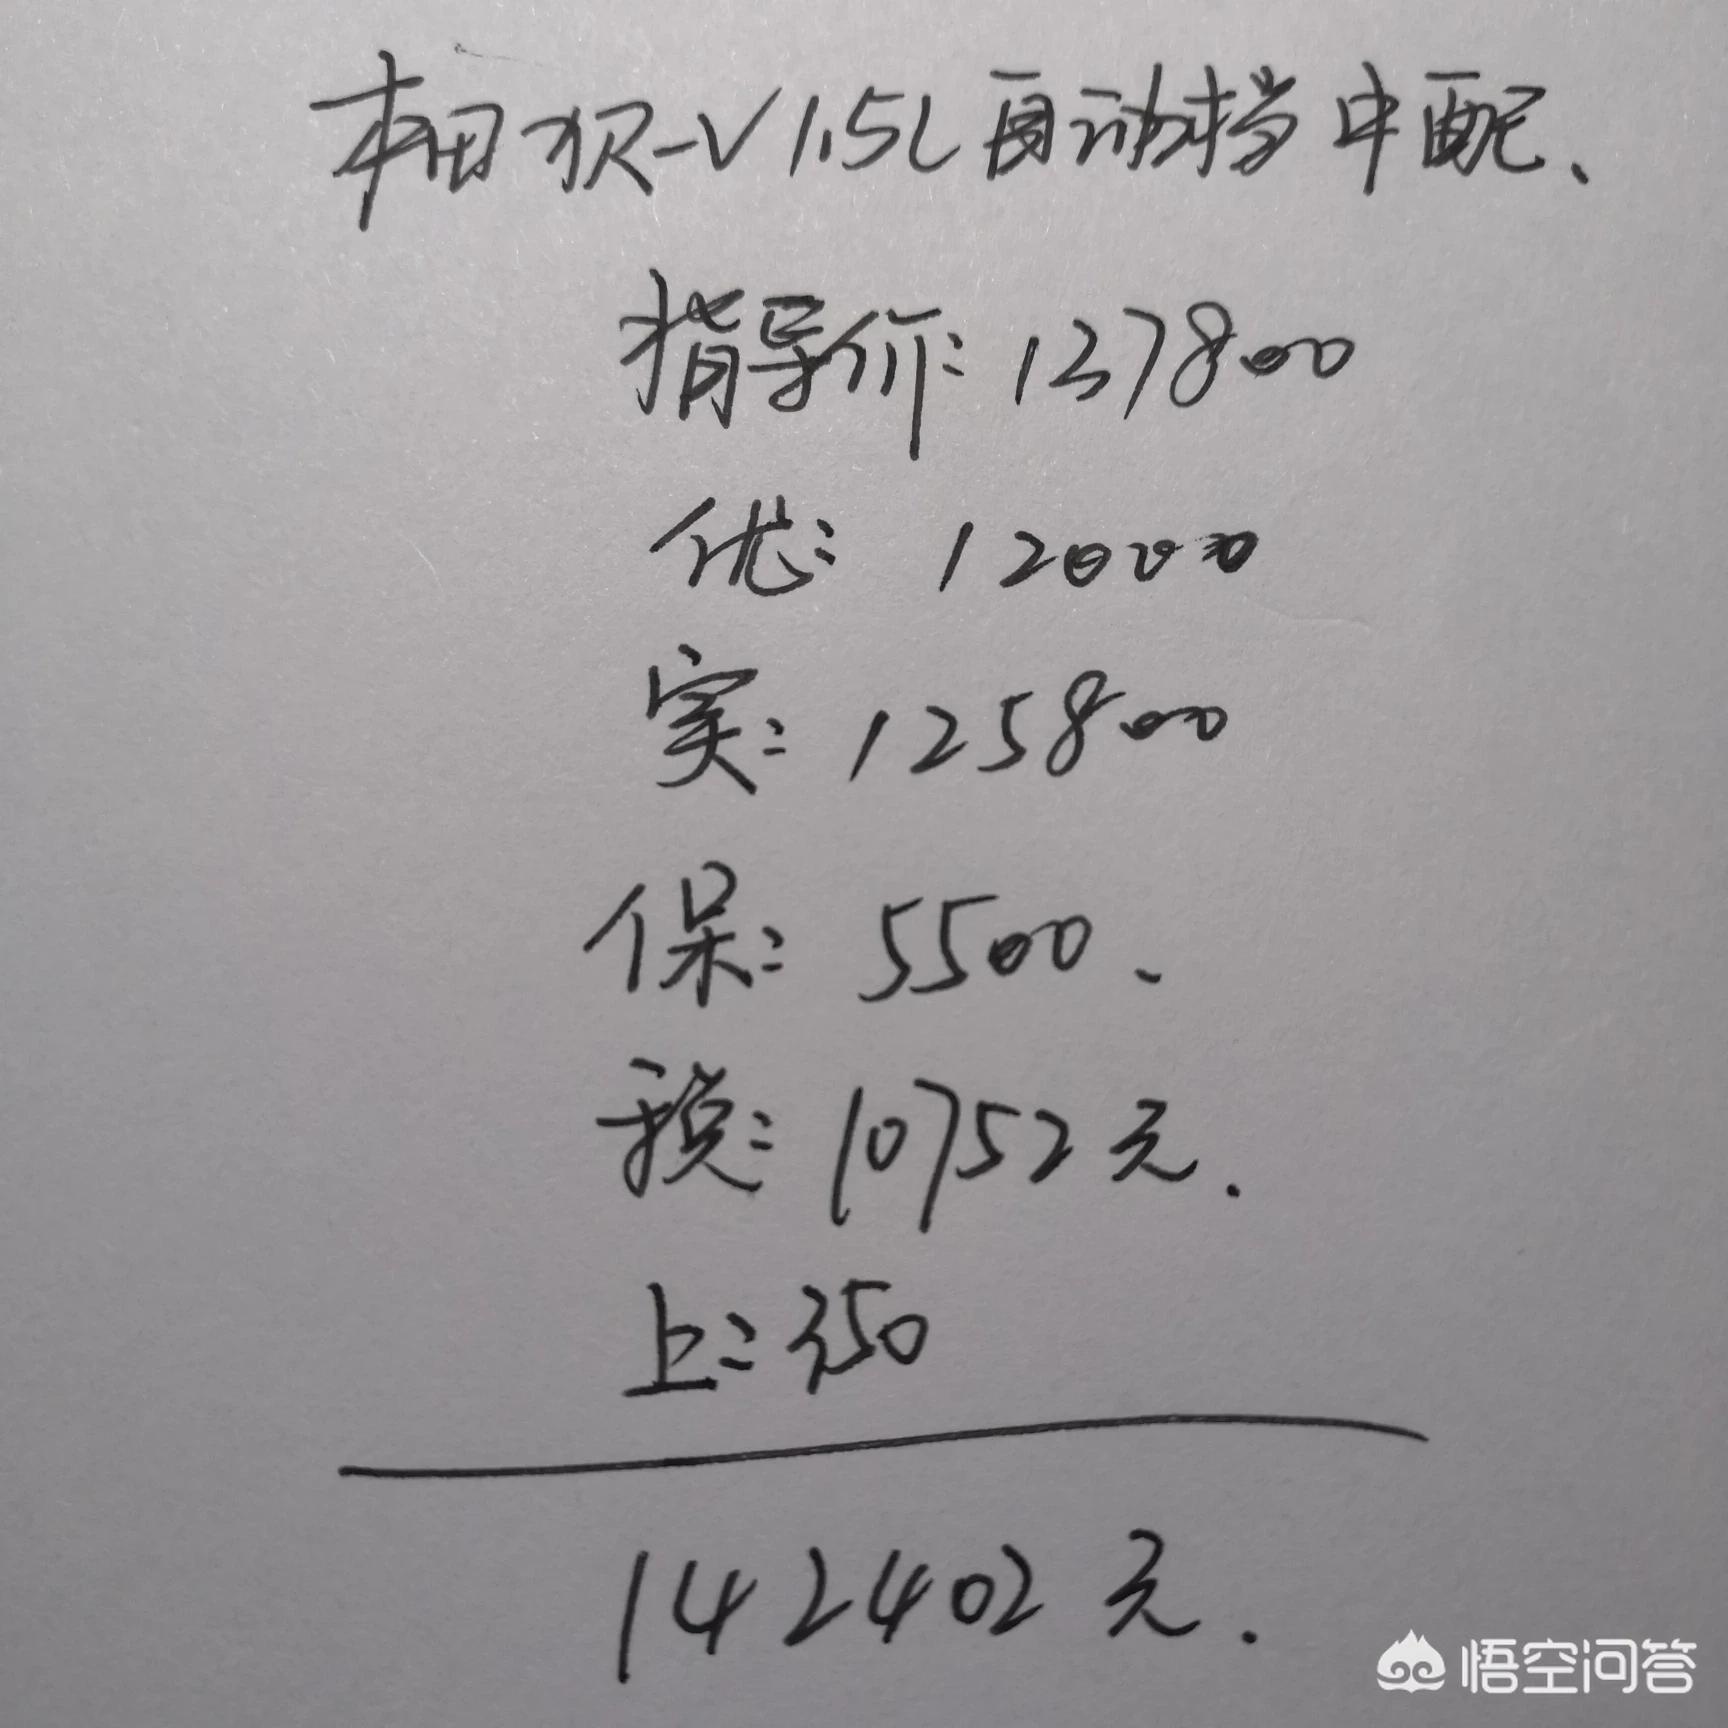 本田XR-V 1.5L自动挡中配、
指导价：137800
优：12000
实：125800
保：5500、
税：10752元.
上：350
142402元.
悟空问答